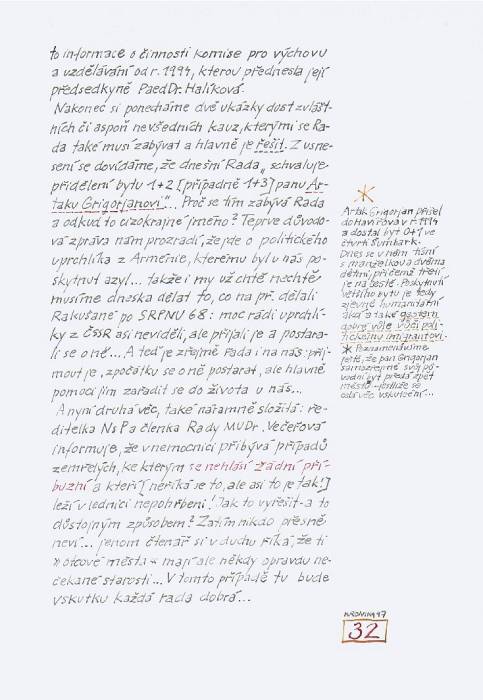 to informace o činnosti komise pro výchovu
a vzdělávání od r. 1994, kterou přednesla její
předsedkyně PaedDr. Halíková.
Nakonec si ponecháme dvě ukázky dost zvlášt-
ních či aspoň nevšedních kauz, kterými se Ra-
da také musí zabývat a hlavně je řešit. Z usne-
sení se dovídáme, že dnešní Rada „schvaluje
přidělení bytu 1+2 [případně 1+3] panu Ar-
taku Grigorjanovi“... Proč se tím zabývá Rada
a odkud to cizokrajné jméno? Teprve důvodo-
vá zpráva nám prozradí, že jde o politického
uprchlíka z Arménie, kterému byl u nás po-
skytnut azyl... takže i my už chtě nechtě
musíme dneska dělat to, co na př. dělali
Rakušané po SRPNU 68: moc rádi uprchlí-
ky z ČSSR asi neviděli, ale přijali je a postara-
li se o ně... A teď je zřejmě řada i na nás: přij-
mout je, zpočátku se o ně postarat, ale hlavně
pomoci jim zařadit se do života u nás...
A nyní druhá věc, také náramně složitá: ře-
ditelka NsP a členka Rady MUDr. Večeřová
informuje, že v nemocnici přibývá případů
zemřelých, ke kterým se nehlásí žádní pří-
buzní a kteří [neříká se to, ale asi to je tak!]
leží v lednici nepohřbeni! Jak to vyřešit - a to
důstojným způsobem? Zatím nikdo přesně
neví... jenom čtenář si v duchu říká, že ti
» otcové města « mají ale někdy opravdu ne-
čekané starosti... V tomto případě tu bude
vskutku každá rada dobrá...
Artak Grigorjan přišel
do Havířova v r. 1994
a dostal byt 0+1 ve
čtvrti Šumbark.
Dnes se v něm tísní
s manželkou a dvěma
dětmi, přičemž třetí
je na cestě. Poskytnutí
většího bytu je tedy
zjevně humanitár-
ní a také gestem
dobré vůle vůči poli-
tickému imigrantovi.
* Poznamenáváme
ještě, že pan Grigorjan
samozřejmě svůj pů-
vodní byt předá zpět
městu
celá věc vskutku...
KRONIKA 97
32